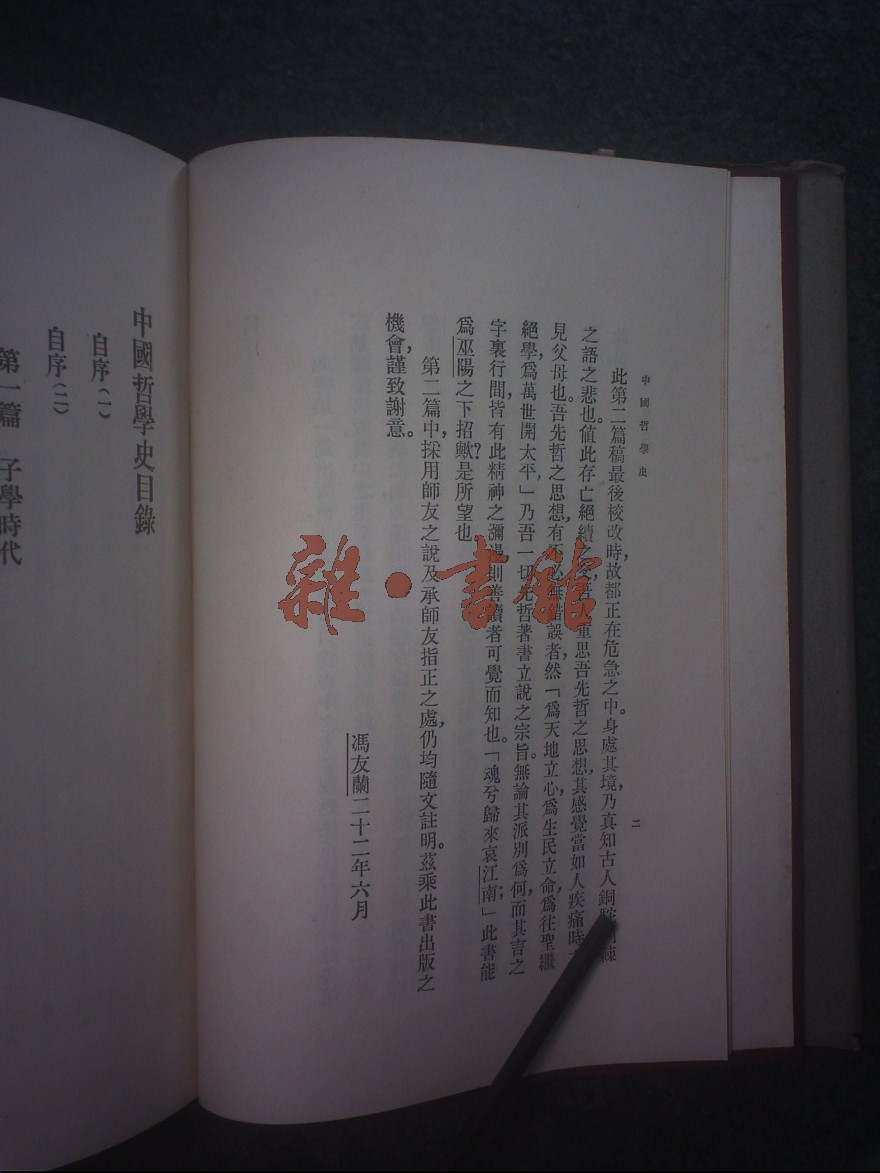 中國哲學史
二
此第二篇稿最後校改時,故都正在危急之中。身處其境,乃真知古人銅棘
之語之悲也。值此存亡絕續之吾人重思吾先哲之思想,其感覺當如人疾痛時
見父母也。吾先哲之思想,有不必無錯誤者,然「爲天地立心,爲生民立命,爲往聖繼
絕學,爲萬世開太平」乃吾一切先哲著書立說之宗旨。無論其派別爲何,而其言之
字裏行間,皆有此精神之瀰漫,則善讀者可覺而知也。「魂兮歸來哀江南;」此書能
爲巫陽之下招歟?是所望也
第二篇中,採用師友之說及承師友指正之處,仍均隨文註明。茲乘此書出版之
機會,謹致謝意。
馮友蘭二十二年六月
中國哲學史目錄
自序(一)
自序(二)
第一篇 子學時代
雜·書館